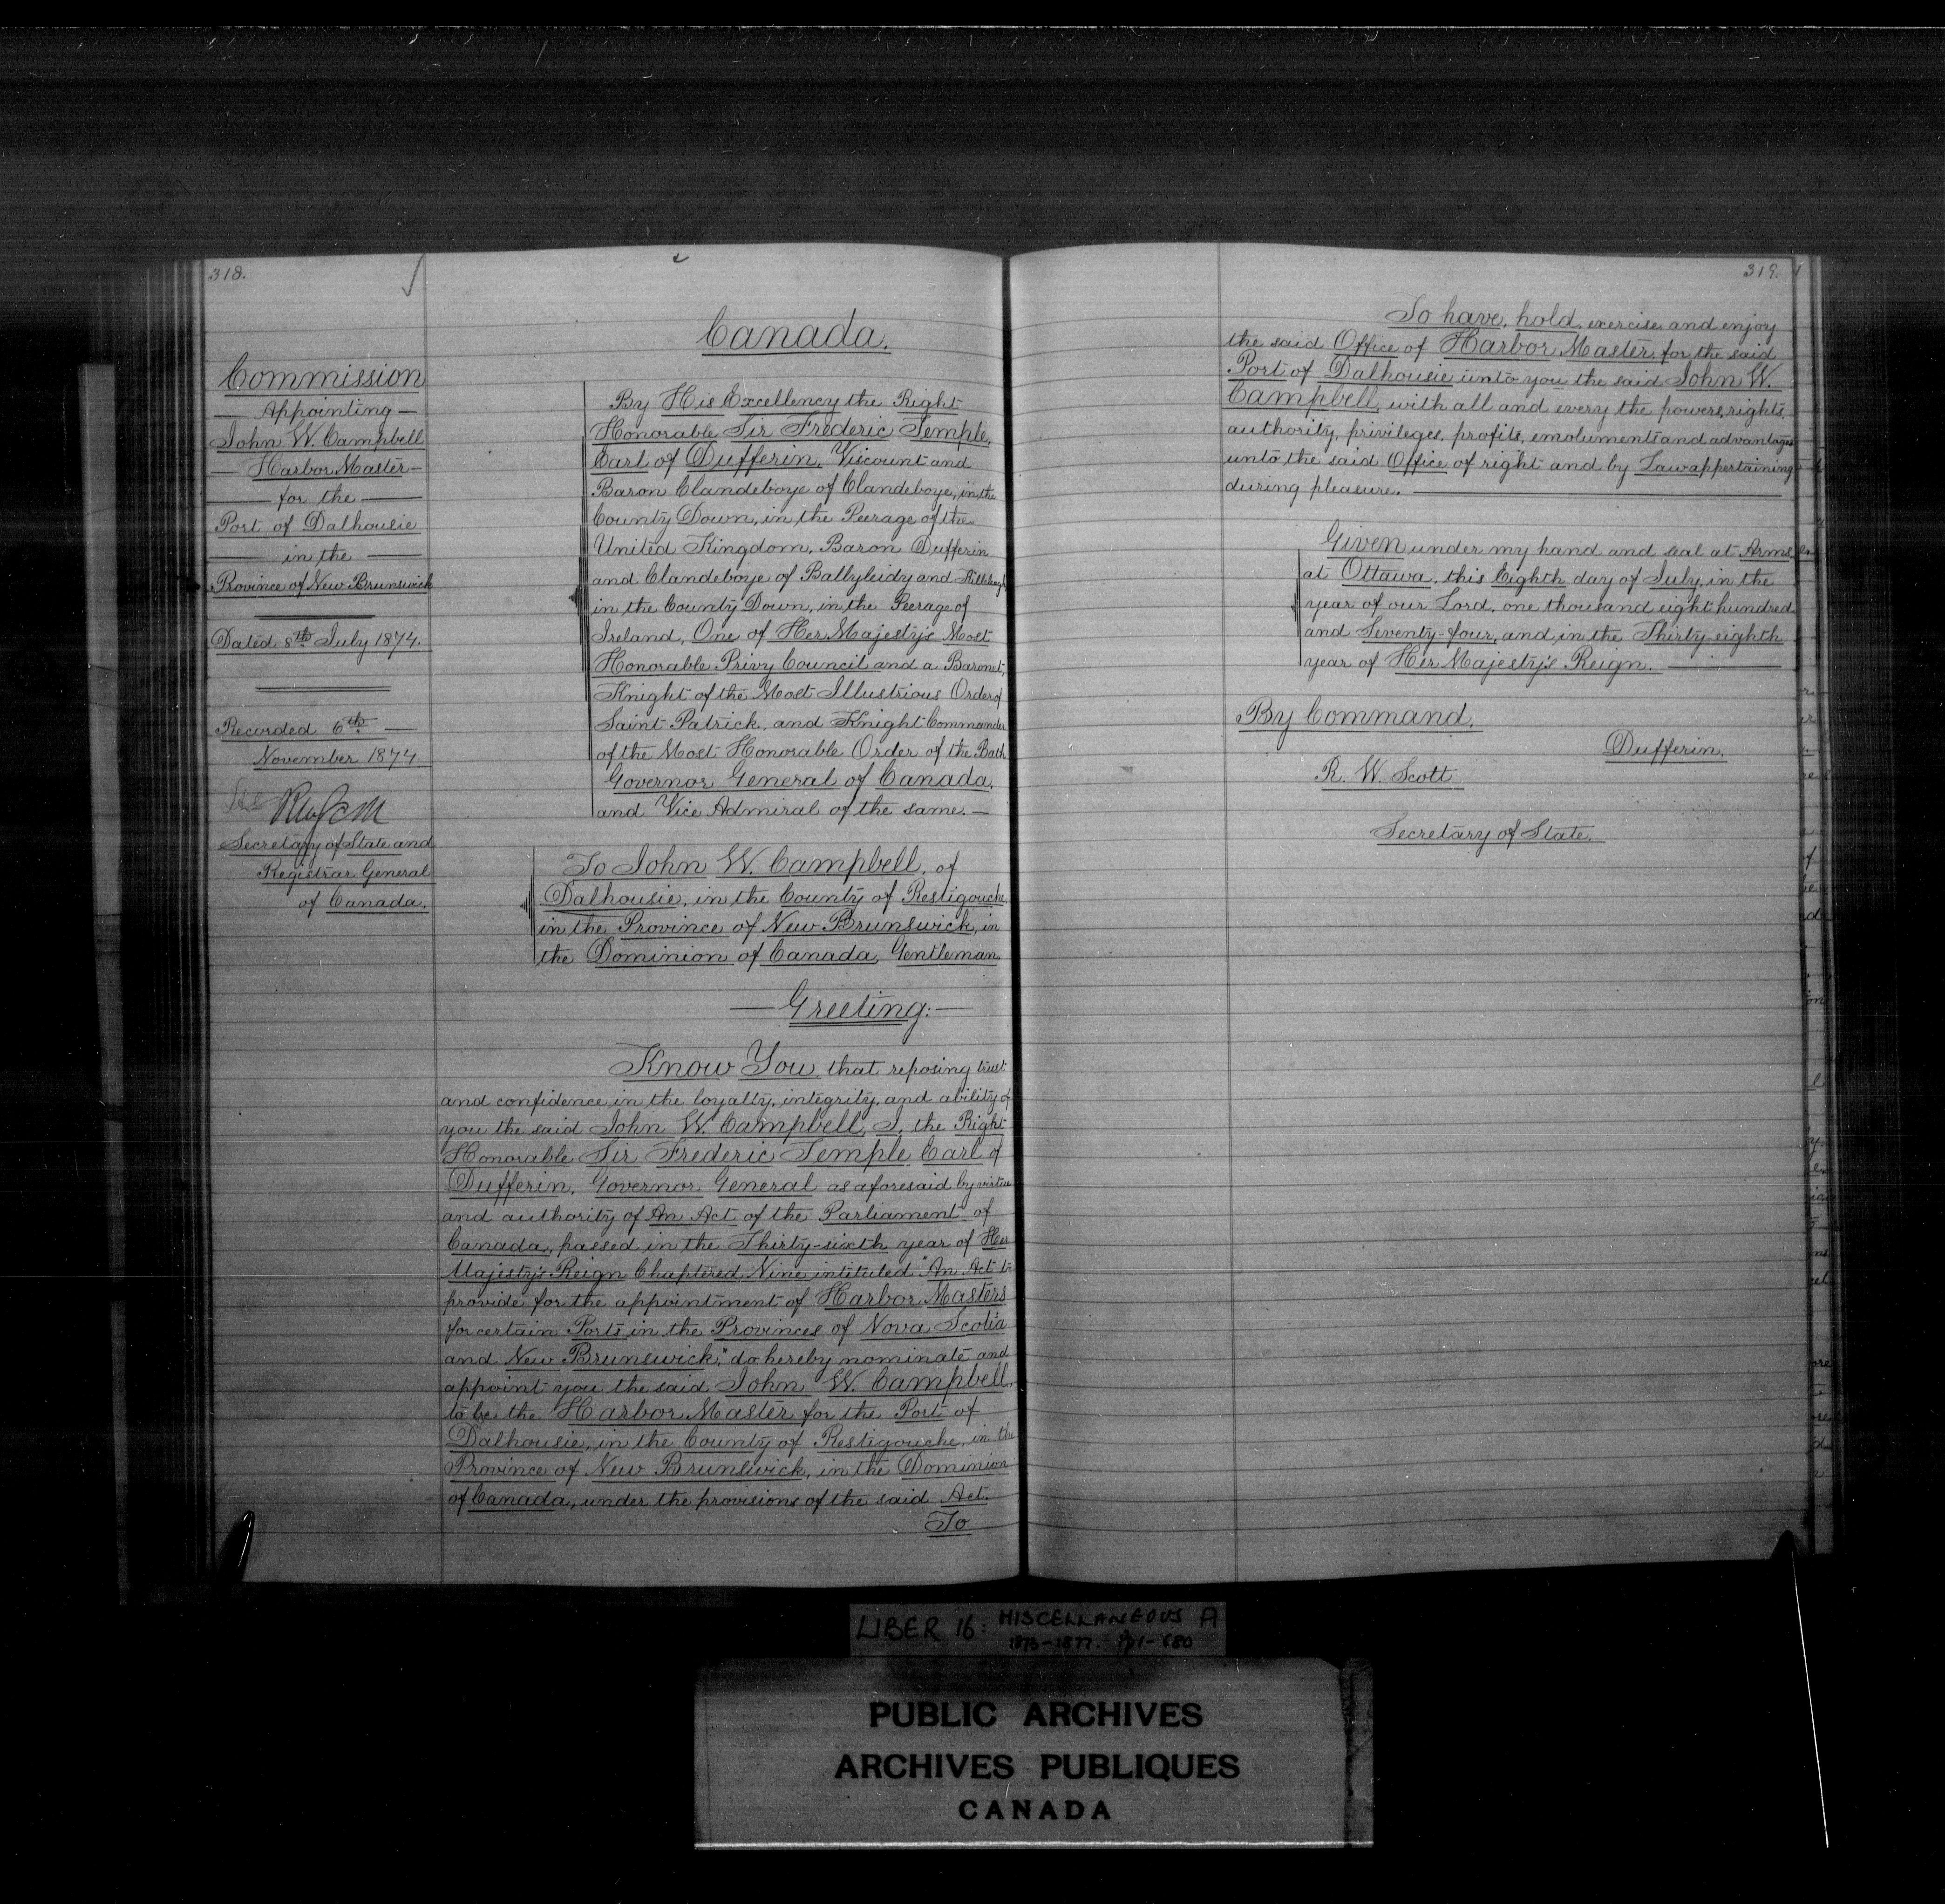 318.
Commission
Appointing
John W. Campbell
Harbor Master
for the
Port of Dalhousie
in the
Province of New Brunswick
Dated 8th July 1874.
Recorded 6th
November 1874
Secretary of State and
Registrar General
of Canada.
Canada.
By His Excellency the Right
Honorable Sir Frederic Temple,
Earl of Dufferin, Viscount and
Baron Clandeboye of Clandeboye, in the
County Down, in the Peerage of the
United Kingdom, Baron Dufferin
and Clandeboye of Ballyleidy and Killeleagh
in the County Down, in the Peerage of
Ireland, One of Her Majesty's Most
Honorable Privy Council and a Baronet,
Knight of the Most Illustrious Order of
Saint Patrick, and Knight Commander
of the Most Honorable Order of the Bath
Governor General of Canada,
and Vice Admiral of the same.
To John W. Campbell, of
Dalhousie, in the County of Restigouche
in the Province of New Brunswick, in
the Dominion of Canada, Gentleman.
Greeting:
Know You, that reposing trust
and confidence in the loyalty, integrity, and ability of
you the said John W. Campbell, I, the Right
Honorable Sir Frederic Temple Earl of
Dufferin, Governor General as aforesaid by virtue
and authority of An Act of the Parliament of
Canada, passed in the Thirty-sixth year of Her
Majesty's Reign Chaptered Nine intituled "An Act to
provide for the appointment of Harbor Masters
for certain Ports in the Provinces of Nova Scotia
and New Brunswick," do hereby nominate and
appoint you the said John W. Campbell,
to be the Harbor Master for the Port of
Dalhousie, in the County of Restigouche, in the
Province of New Brunswick, in the Dominion
of Canada, under the provisions of the said Act.
To
319.
To have, hold, exercise and enjoy
the said Office of Harbor Master for the said
Port of Dalhousie unto you the said John W.
Campbell, with all and every the powers, rights,
authority, privileges, profits, emoluments and advantages
unto the said Office of right and by Law appertaining
during pleasure.
Given under my hand and seal at Arms,
at Ottawa, this Eighth day of July, in the
year of our Lord, one thousand eight hundred
and Seventy-four, and in the Thirty-eighth
year of Her Majesty's Reign.
By Command,
Dufferin.
R. W. Scott
Secretary of State.
LIBER 16: MISCELLANEOUS A
1873-1877. Pp 1-680
PUBLIC ARCHIVES
ARCHIVES PUBLIQUES
CANADA